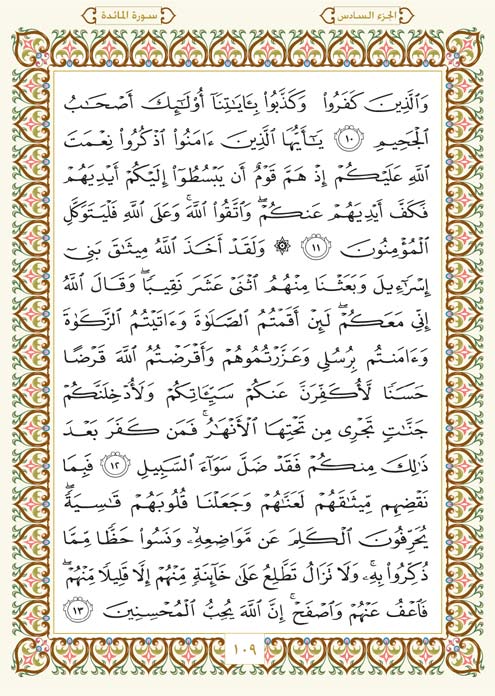 الجزء السادس
سورة المائدة
وَٱلَّذِينَ كَفَرُوا۟ وَكَذَّبُوا۟ بِـَٔايَـٰتِنَآ أُو۟لَـٰٓئِكَ أَصْحَـٰبُ
ٱلْجَحِيمِ ١٠ يَـٰٓأَيُّهَا ٱلَّذِينَ ءَامَنُوا۟ ٱذْكُرُوا۟ نِعْمَتَ
ٱللَّهِ عَلَيْكُمْ إِذْ هَمَّ قَوْمٌ أَن يَبْسُطُوٓا۟ إِلَيْكُمْ أَيْدِيَهُمْ
فَكَفَّ أَيْدِيَهُمْ عَنكُمْ ۖ وَٱتَّقُوا۟ ٱللَّهَ ۚ وَعَلَى ٱللَّهِ فَلْيَتَوَكَّلِ
ٱلْمُؤْمِنُونَ ١١ ۞ وَلَقَدْ أَخَذَ ٱللَّهُ مِيثَـٰقَ بَنِىٓ
إِسْرَٰٓءِيلَ وَبَعَثْنَا مِنْهُمُ ٱثْنَىْ عَشَرَ نَقِيبًا ۖ وَقَالَ ٱللَّهُ
إِنِّى مَعَكُمْ ۖ لَئِنْ أَقَمْتُمُ ٱلصَّلَوٰةَ وَءَاتَيْتُمُ ٱلزَّكَوٰةَ
وَءَامَنتُم بِرُسُلِى وَعَزَّرْتُمُوهُمْ وَأَقْرَضْتُمُ ٱللَّهَ قَرْضًا
حَسَنًا لَّأُكَفِّرَنَّ عَنكُمْ سَيِّـَٔاتِكُمْ وَلَأُدْخِلَنَّكُمْ
جَنَّـٰتٍ تَجْرِى مِن تَحْتِهَا ٱلْأَنْهَـٰرُ ۚ فَمَن كَفَرَ بَعْدَ
ذَٰلِكَ مِنكُمْ فَقَدْ ضَلَّ سَوَآءَ ٱلسَّبِيلِ ١٢ فَبِمَا
نَقْضِهِم مِّيثَـٰقَهُمْ لَعَنَّـٰهُمْ وَجَعَلْنَا قُلُوبَهُمْ قَـٰسِيَةً ۖ
يُحَرِّفُونَ ٱلْكَلِمَ عَن مَّوَاضِعِهِۦ ۙ وَنَسُوا۟ حَظًّا مِّمَّا
ذُكِّرُوا۟ بِهِۦ ۚ وَلَا تَزَالُ تَطَّلِعُ عَلَىٰ خَآئِنَةٍ مِّنْهُمْ إِلَّا قَلِيلًا مِّنْهُمْ ۖ
فَٱعْفُ عَنْهُمْ وَٱصْفَحْ ۚ إِنَّ ٱللَّهَ يُحِبُّ ٱلْمُحْسِنِينَ ١٣
١٠٩